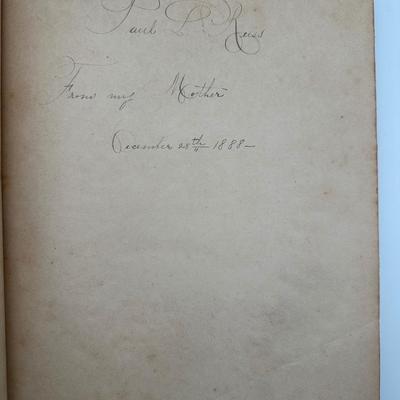 Paul L. Reiss
From my Mother
December 25th 1888-